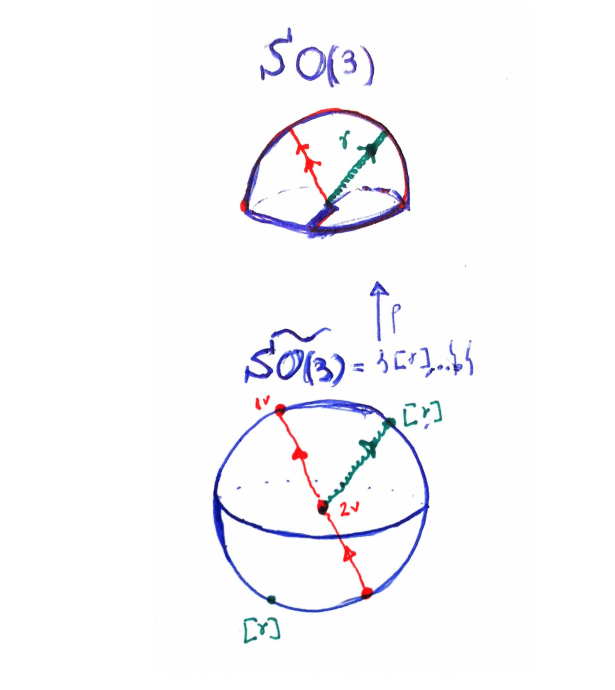 SO(3)
γ
p
SO(3) = {[γ],...}
1v
[γ]
2v
[γ]